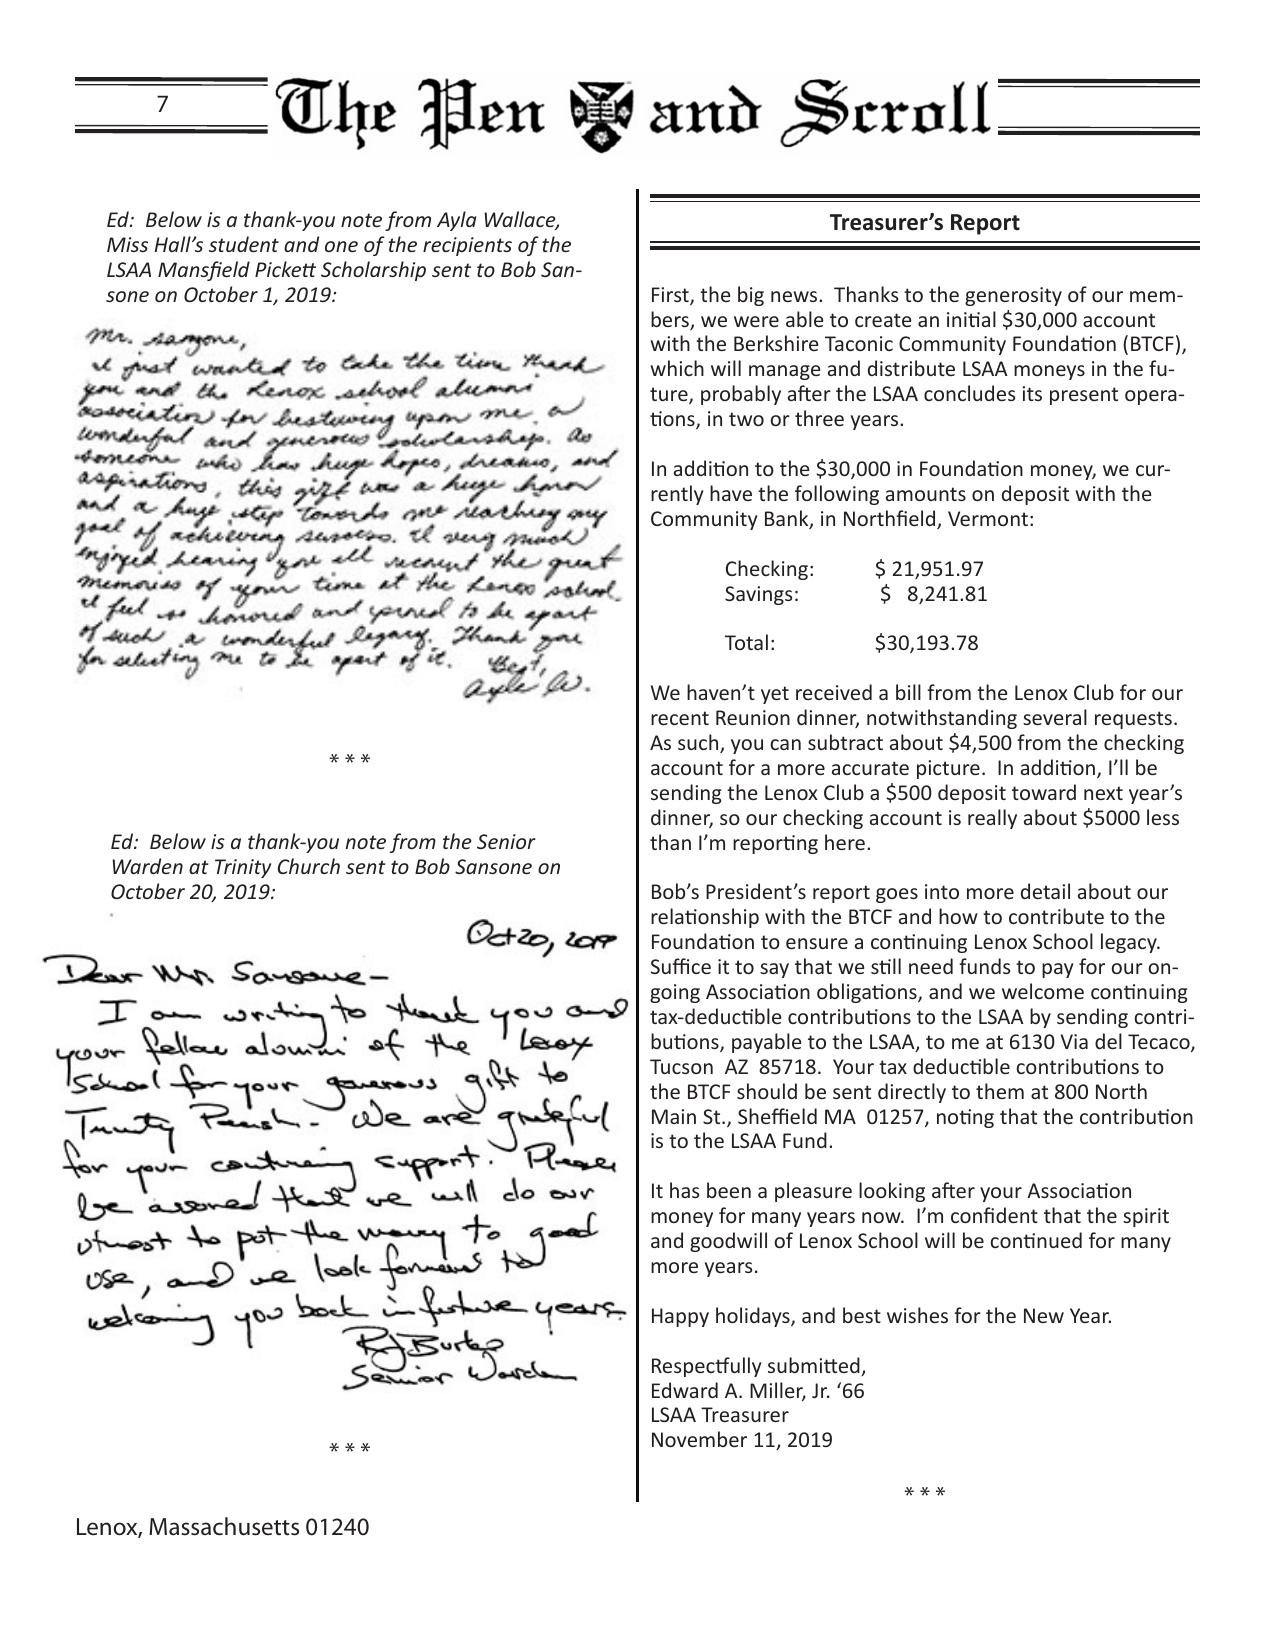 7
The Pen and Scroll
Ed:  Below is a thank-you note from Ayla Wallace,
Miss Hall’s student and one of the recipients of the
LSAA Mansfield Pickett Scholarship sent to Bob San-
sone on October 1, 2019:
Mr. Sansone,
I just wanted to take the time thank
you and the Lenox school alumni
association for bestowing upon me a
wonderful and generous scholarship. As
someone who has huge hopes, dreams, and
aspirations, this gift was a huge honor
and a huge step towards me reaching my
goal of achieving success. I very much
enjoyed hearing you all recount the great
memories of your time at the Lenox school.
I feel so honored and proud to be apart
of such a wonderful legacy. Thank you
for selecting me to be apart of it. Best,
Ayla W.
* * *
Ed:  Below is a thank-you note from the Senior
Warden at Trinity Church sent to Bob Sansone on
October 20, 2019:
Oct 20, 2019
Dear Mr. Sansone –
I am writing to thank you and
your fellow alumni of the Lenox
School for your generous gift to
Trinity Parish. We are grateful
for your continuing support. Please
be assured that we will do our
utmost to put the money to good
use, and we look forward to
welcoming you back in future years.
Senior Warden
* * *
Lenox, Massachusetts 01240
Treasurer’s Report
First, the big news.  Thanks to the generosity of our mem-
bers, we were able to create an initial $30,000 account
with the Berkshire Taconic Community Foundation (BTCF),
which will manage and distribute LSAA moneys in the fu-
ture, probably after the LSAA concludes its present opera-
tions, in two or three years.
In addition to the $30,000 in Foundation money, we cur-
rently have the following amounts on deposit with the
Community Bank, in Northfield, Vermont:
Checking: $ 21,951.97
Savings: $ 8,241.81
Total: $30,193.78
We haven’t yet received a bill from the Lenox Club for our
recent Reunion dinner, notwithstanding several requests.
As such, you can subtract about $4,500 from the checking
account for a more accurate picture.  In addition, I’ll be
sending the Lenox Club a $500 deposit toward next year’s
dinner, so our checking account is really about $5000 less
than I’m reporting here.
Bob’s President’s report goes into more detail about our
relationship with the BTCF and how to contribute to the
Foundation to ensure a continuing Lenox School legacy.
Suffice it to say that we still need funds to pay for our on-
going Association obligations, and we welcome continuing
tax-deductible contributions to the LSAA by sending contri-
butions, payable to the LSAA, to me at 6130 Via del Tecaco,
Tucson  AZ  85718.  Your tax deductible contributions to
the BTCF should be sent directly to them at 800 North
Main St., Sheffield MA  01257, noting that the contribution
is to the LSAA Fund.
It has been a pleasure looking after your Association
money for many years now.  I’m confident that the spirit
and goodwill of Lenox School will be continued for many
more years.
Happy holidays, and best wishes for the New Year.
Respectfully submitted,
Edward A. Miller, Jr. ‘66
LSAA Treasurer
November 11, 2019
* * *